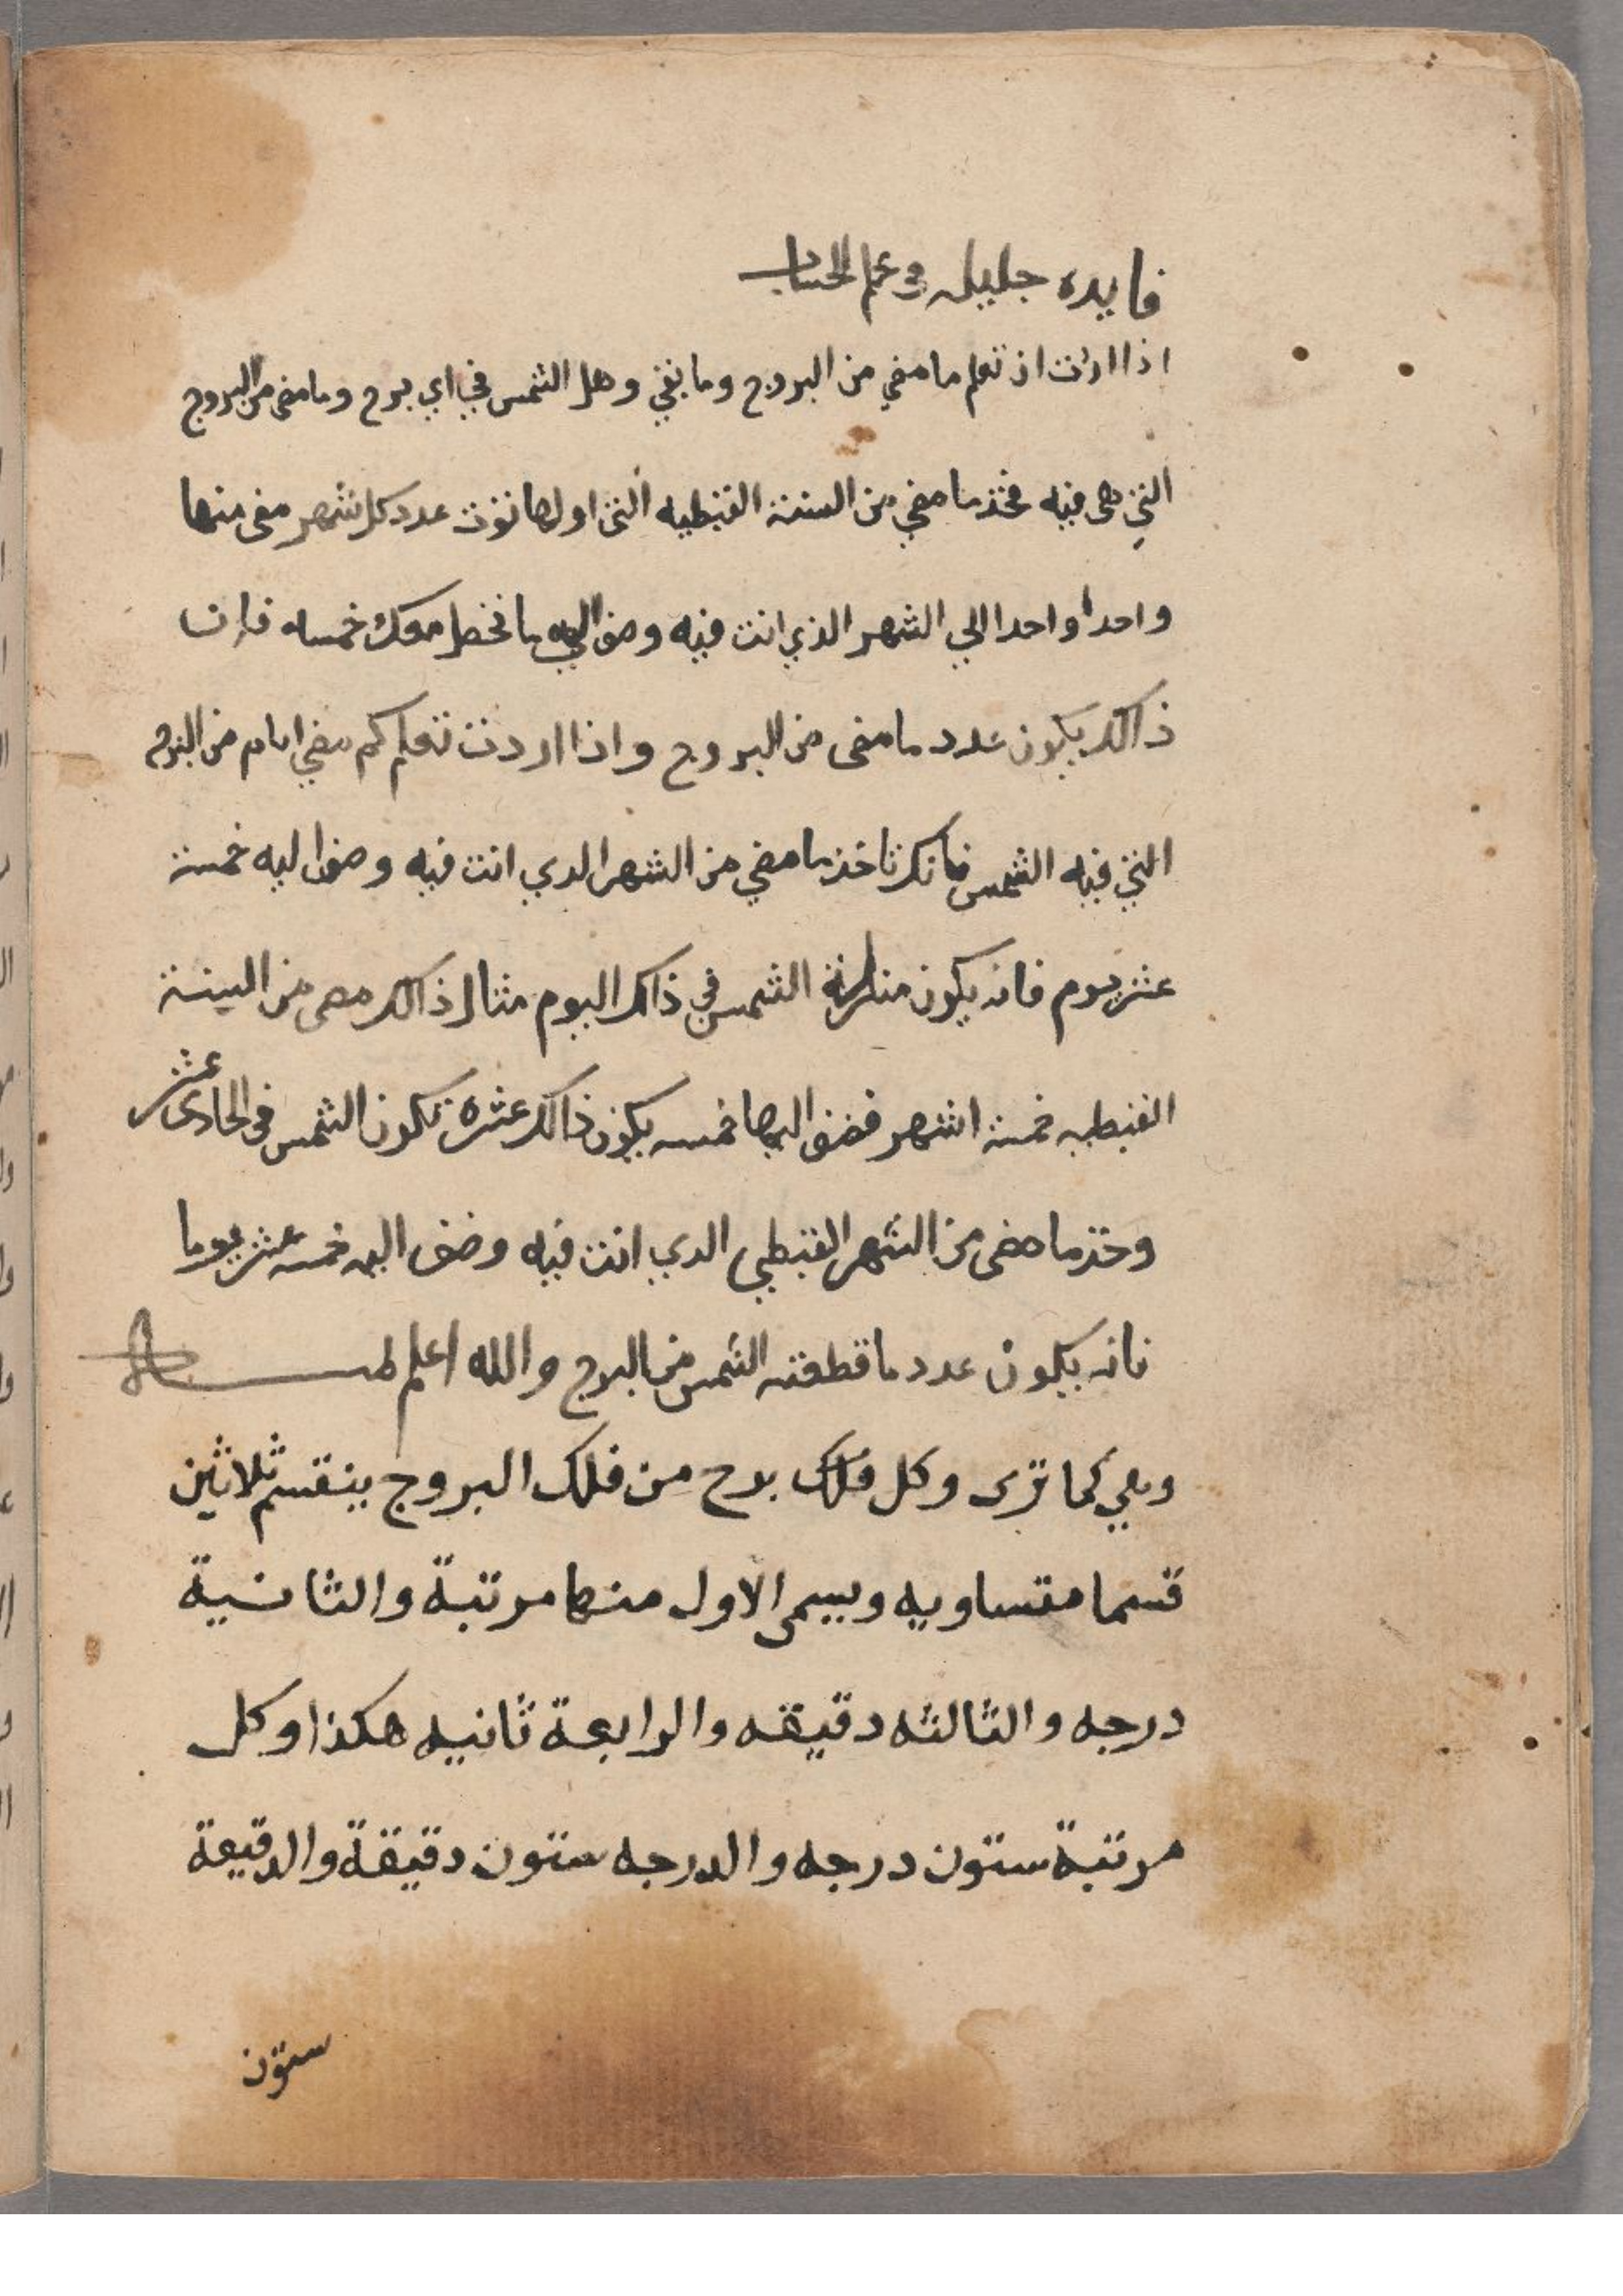 فايده جليله في علم الحساب
اذا اردت ان تعلم ما مضي من البروج وما بقي وهل الشمس في اي برج وما مضى من البروج
التي هي فيه فخذ ما مضي من السنة القبطيه التي اولها توت عدد كل شهر مضى منها
واحدا واحدا الي الشهر الذي انت فيه وضف اليه ما تحفظ معك خمسه فان
ذالك يكون عدد ما مضى من البروج واذا اردت تعلم كم مضي ايام من البرج
التي فيه الشمس فانك تاخذ ما مضي من الشهر الدي انت فيه وضف اليه خمسة
عشر يوم فانه يكون منزلة الشمس في ذالك اليوم مثال ذالك مضى من السنة
القبطيه خمسة اشهر فضف اليها خمسه يكون ذالك عشره تكون الشمس في الحادى عشر
وخذ ما مضى من الشهر القبطي الدي انت فيه وضف اليه خمسه عشر يوما
فانه يكون عدد ما قطعته الشمس من البرج والله اعلم
وهي كما ترى وكل فلك برج من فلك البروج ينقسم ثلاثين
قسما متساويه ويسمى الاول منها مرتبة والثانية
درجه والثالثه دقيقه والرابعة ثانيه هكذا وكل
مرتبة ستون درجه والدرجه ستون دقيقة والدقيقة
ستون